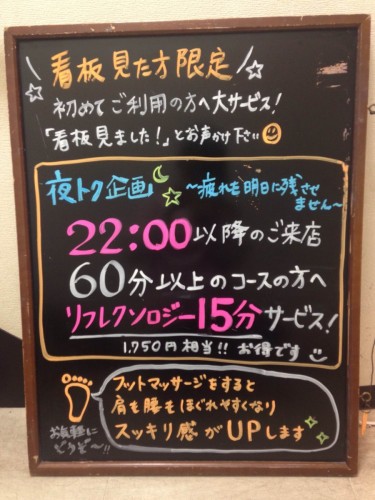 看板見た方限定
初めてご利用の方へ大サービス!
「看板見ました!」とお声かけ下さい
夜トク企画
~疲れを明日に残させ
ません~
22:00以降のご来店
60分以上のコースの方へ
リフレクソロジー15分サービス!
1,750円相当!! お得です
フットマッサージをすると
肩も腰もほぐれやすくなり
スッキリ感がUPします
お気軽に
どうぞ~!!